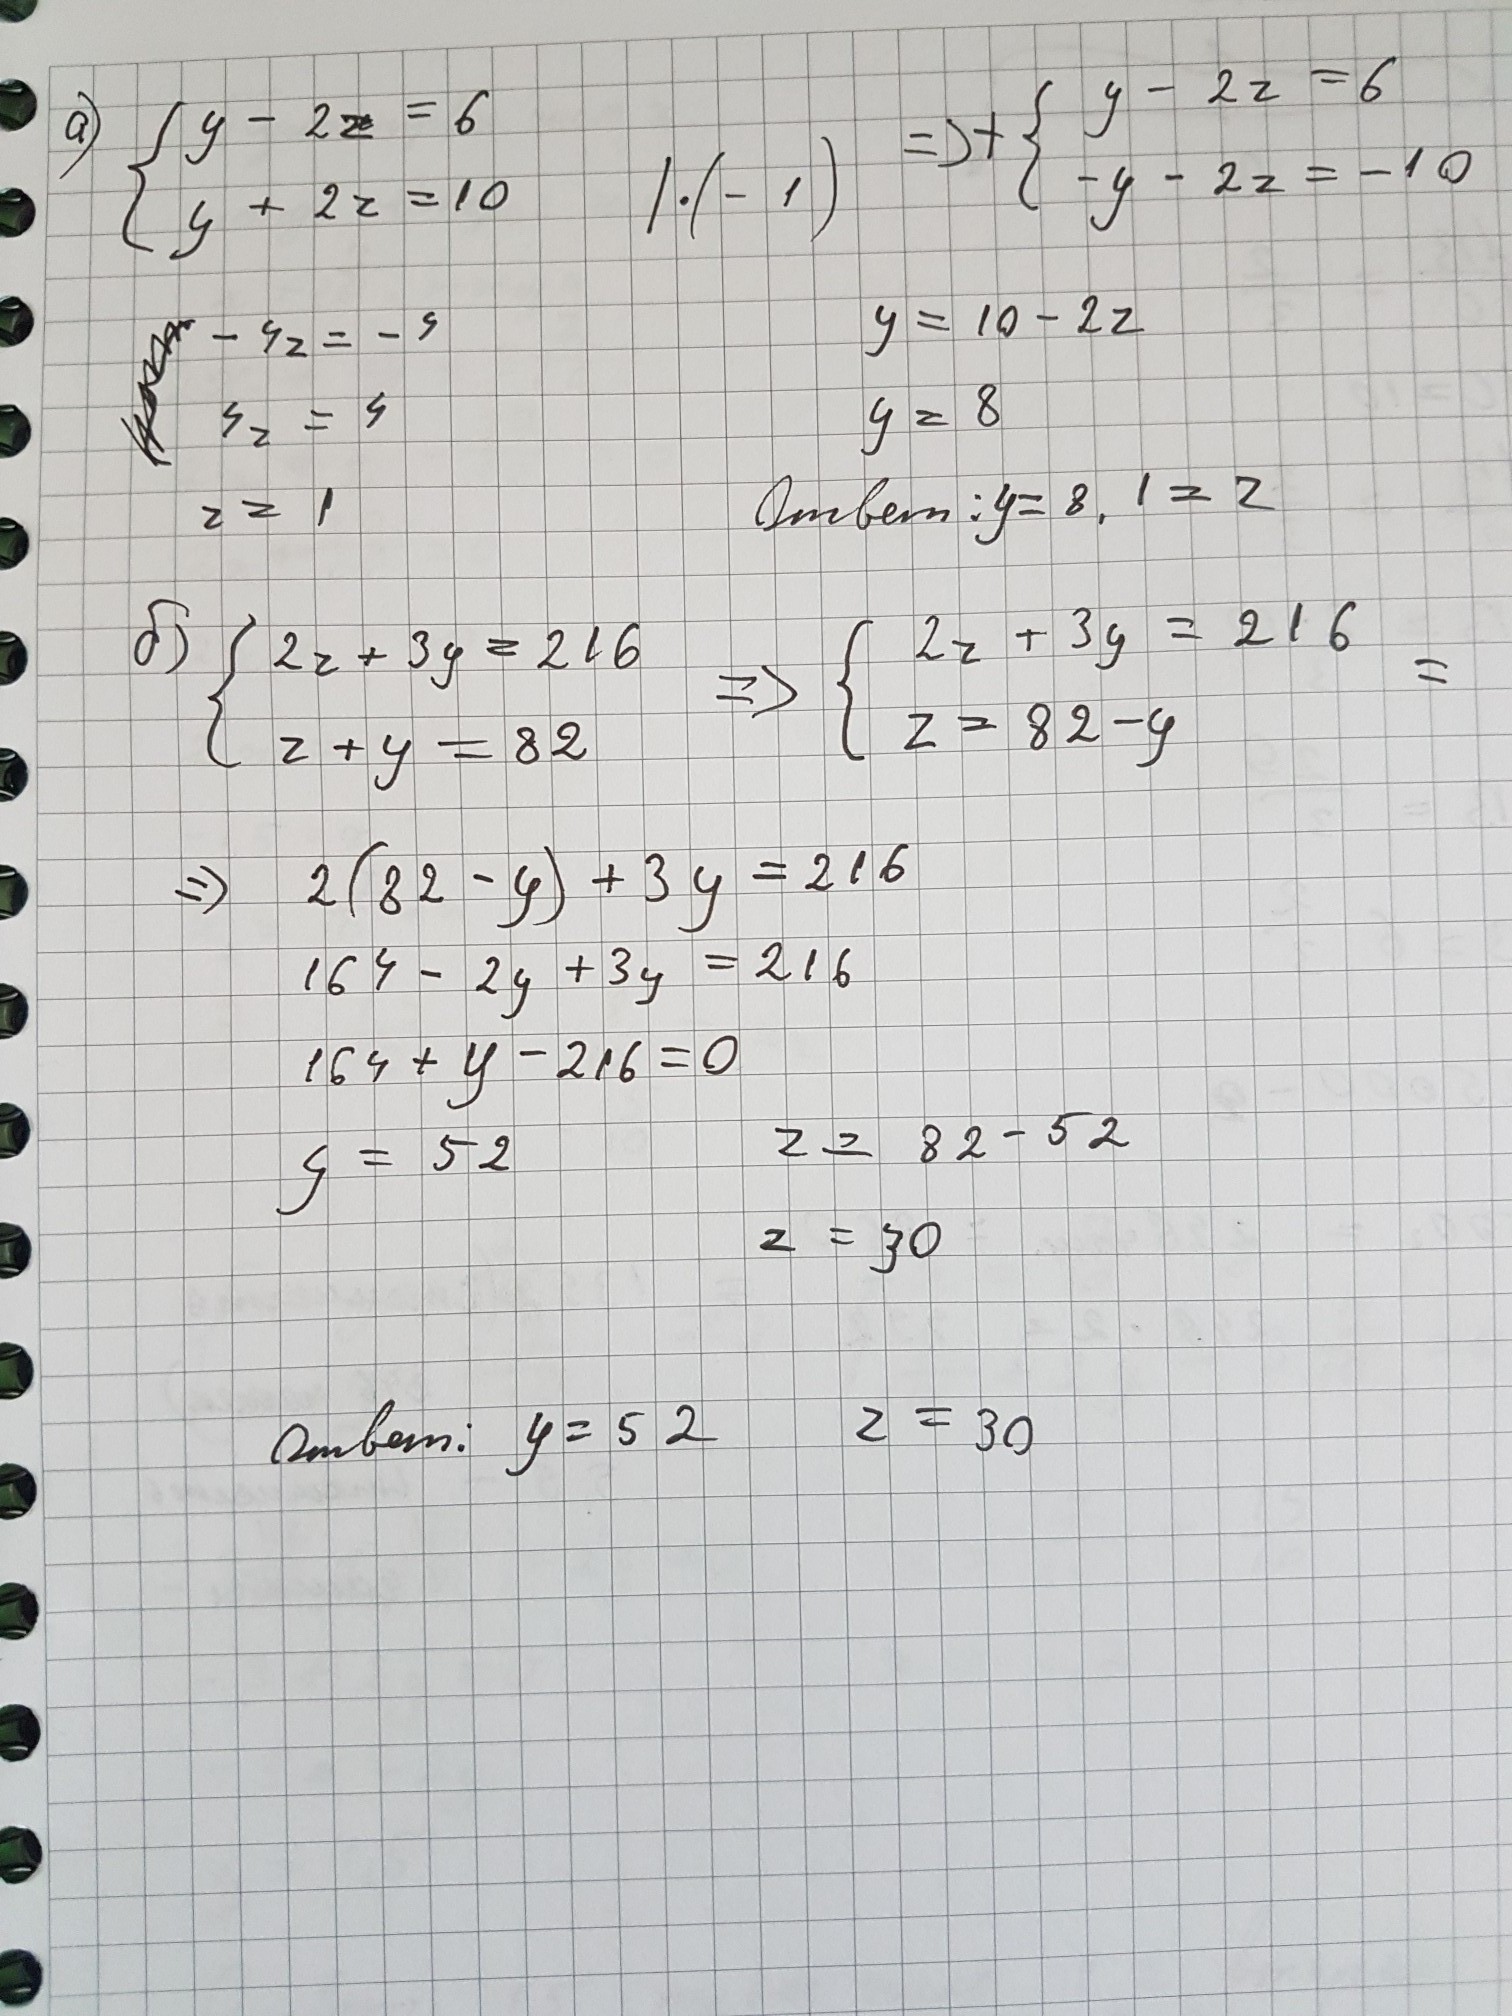 а) { y - 2z = 6
y + 2z = 10 | · (- 1)
=> + { y - 2z = 6
-y - 2z = -10
- 4z = - 4
4z = 4
z = 1
y = 10 - 2z
y = 8
Ответ: y = 8, 1 = z
б) { 2z + 3y = 216
z + y = 82
=> { 2z + 3y = 216
z = 82 - y
=
=> 2(82 - y) + 3y = 216
164 - 2y + 3y = 216
164 + y - 216 = 0
y = 52
z = 82 - 52
z = 30
Ответ: y = 52 z = 30